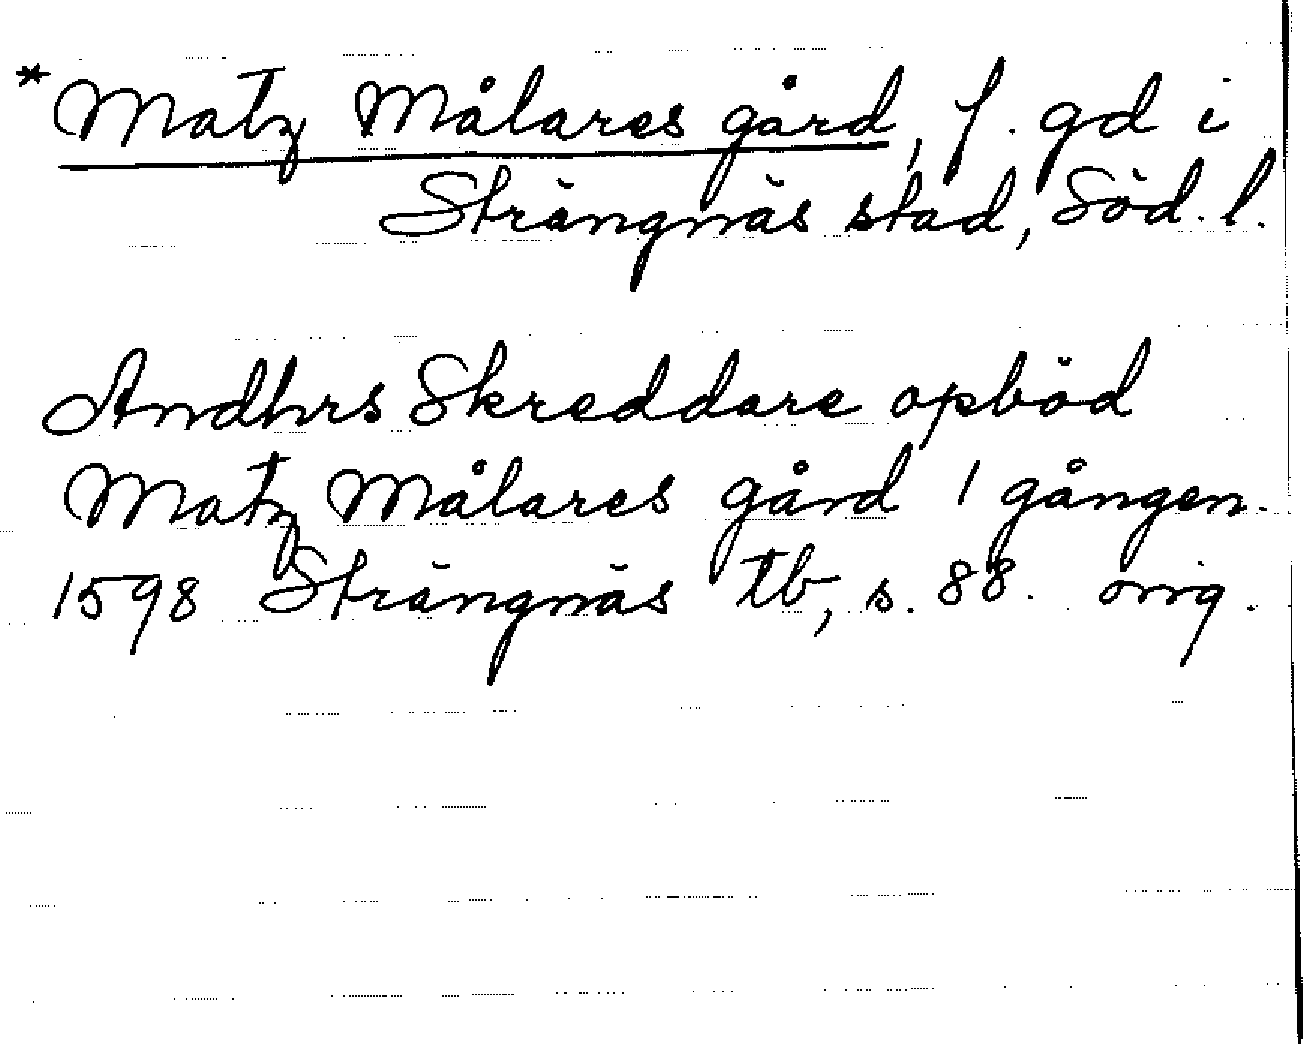 *Matz Målares gård, f. gd i
Strängnäs stad, Söd. l.
Andhrs Skreddare opböd
Matz Målares gård 1 gången.
1598 Strängnäs tb, s. 88. orig.